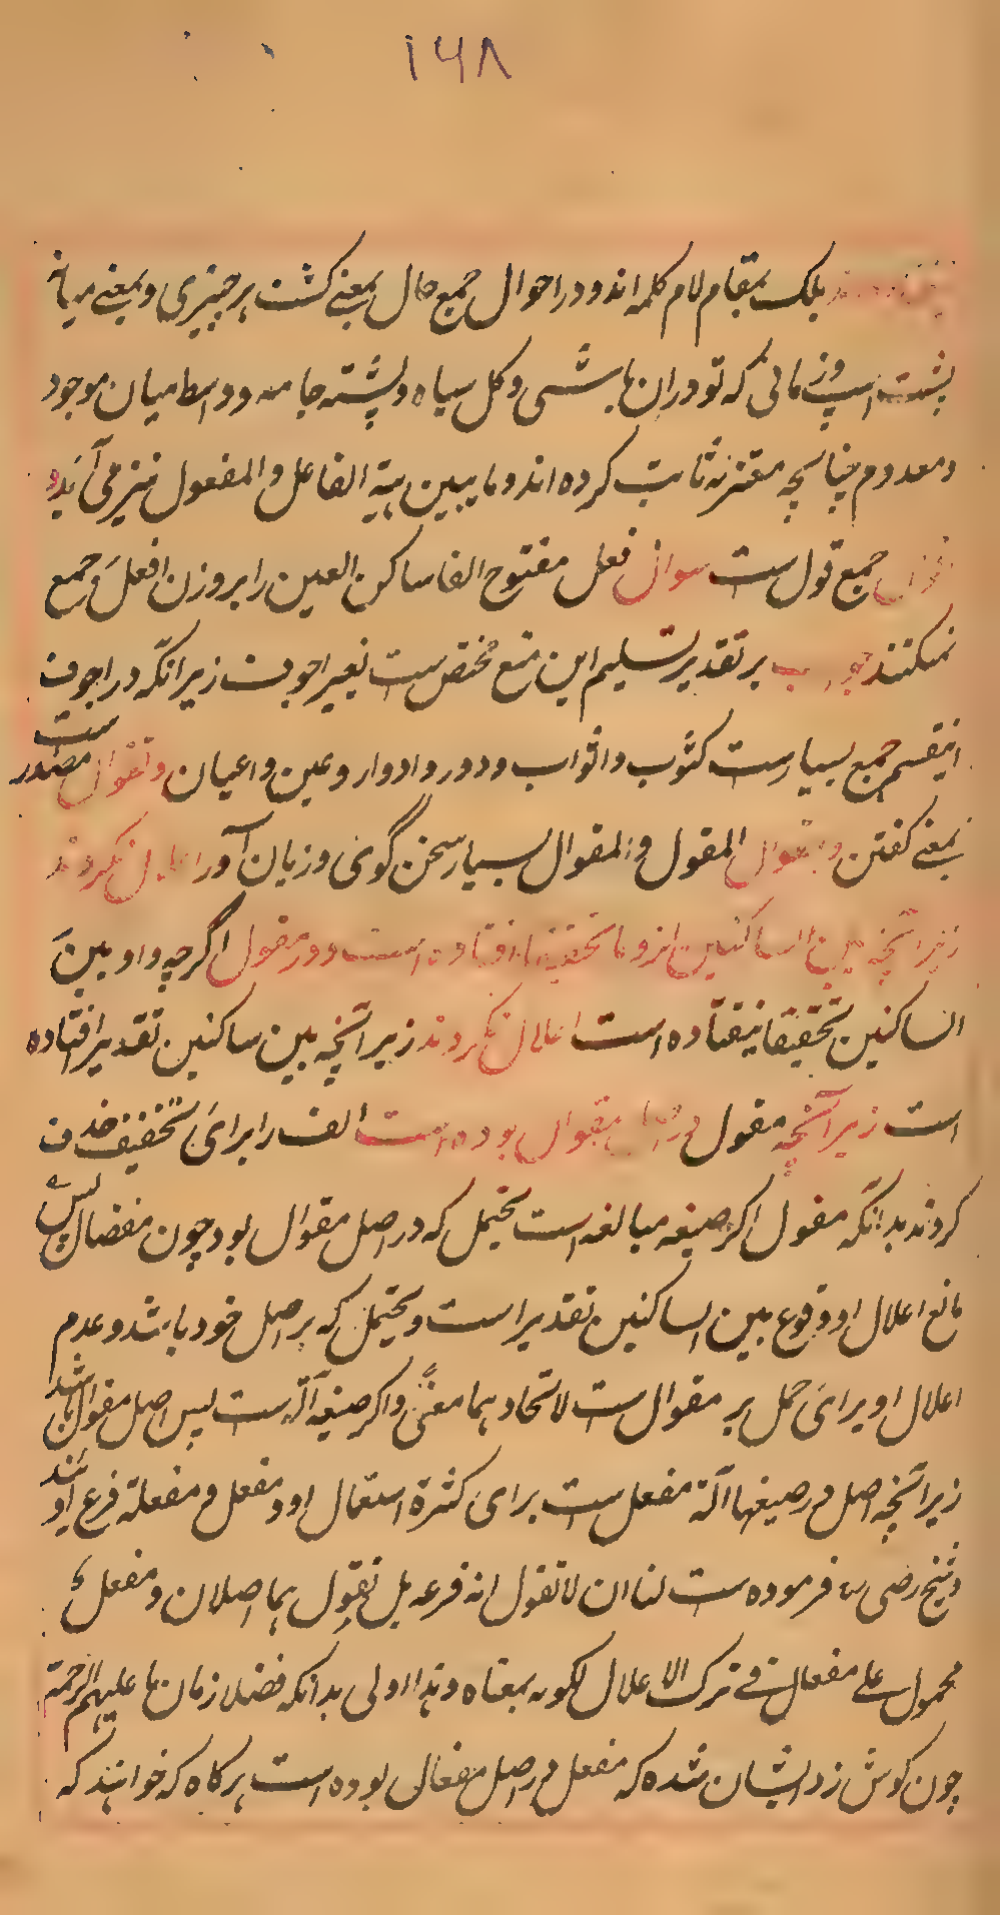 ۱۶۸
بلک بمقام لام کلمه اند و در احوال جمع حال بمعنے کشت هر چیزی و بمعنے میانه
پشت اسپ و زمانی که تو دران باشی و کل سیاه و پشته جامه و واسطه میان موجود
و معدوم چنانچه معتزله ثابت کرده اند و مابین هیة الفاعل و المفعول نیز می آید و
اقوال جمع قول ست سوال فعل مفتوح الفا ساکن العین را بر وزن افعال جمع
نمیکنند جواب بر تقدیر تسلیم این منع مختص ست بغیر اجوف زیرانکه در اجوف
اینقسم جمع بسیارست کثوب و اثواب و دور و ادوار و عین و اعیان و تقوال مصدر ست
بمعنے گفتن و مقوال المقول و المقوال بسیار سخن گوی و زبان آور اعلال نکردند
زیرانچه بین الساکنین این دو ما تحقیقا افتاده است و در مقول اگرچه واو بین
الساکنین تحقیقا نیفتاده است اعلال نکردند زیرانچه بین ساکنین تقدیرا افتاده
است زیرانچه مقول در اصل مقوال بوده است الف را برای تخفیف حذف
کردند بدانکه مقول اکر صیغه مبالغه است یحتمل که در اصل مقوال بود چون مفضال پس
مانع اعلال او وقوع بین الساکنین تقدیرا است و یحتمل که بر اصل خود باشد و عدم
اعلال او برای حمل بر مقوال ست لاتحادهما معنًی و اکر صیغه آله ست پس اصل مقوال باشد
زیرانچه اصل در صیغها آلة مفعل ست برای کثرة استعمال او و مفعل و مفعلة فرع او یند
و شیخ رضی فرموده ست لنا ان لا نقول انه فرعه بل نقول هما اصلان و مفعل
محمول علے مفعال فے ترک الاعلال لکونه بمعناه و هذا اولی بدانکه فضلا زمان ما علیهم الرحمة
چون کوش زد ایشان شده که مفعل در اصل مفعال بوده است هر کاه که خوانند که